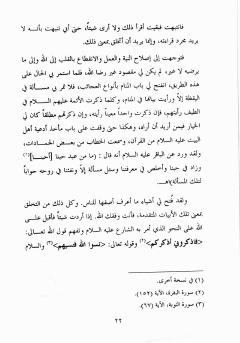 فانتبهت فبقيت أقرأ ذلك ولا أرى شيئاً، حتى أني تنبهت بأنه لا
يريد مجرد قراءته، وإنما يريد أن أتخلق بمعنى ذلك.
فتوجهت إلى إصلاح النية والعمل والانقطاع بالقلب إلى الله وإلى ما
يرضيه لا غير، لم يكن لي مقصود غير رضا الله، فلما استمر بي الحال على
هذه الطريق، انفتح لي باب المنام بأنواع العجائب، فلا تمر بي مسألة في
اليقظة إلا ورأيت بيانها في المنام، وكلما ذكرت الأئمة عليهم السلام في
الطيف رأيتهم، فإن ذكرت واحداً معيناً رأيته، وإن ذكرتهم مطلقاً كان لي
الخيار فيمن أريد أن أراه، وهكذا حتى وقفت على باب مأخذ أدعية أهل
البيت عليه السلام من القرآن، وسمعت الخطاب من بعض الجمادات،
ولقد ورد عن الباقر عليه السلام أنه قال: (ما من عبد حبنا [أحبنا](١)
وزاد في حبنا وأخلص في معرفتنا وسئل مسألة إلا ونفثنا في روعه جواباً
لتلك المسألة)اهـ.
ولقد فُتح لي أشياء ما أعرف أصفها للناس. وكل ذلك من التخلق
بمعنى تلك الأبيات المتقدمة، فأنت وفقك الله. إذا أردت شيئاً فأقبل على
الله على النحو الذي أمر به الشارع عليه السلام وتفهم قول الله تعالى:
﴿فاذكروني أذكركم﴾(٢) وقوله تعالى: ﴿نسوا الله فنسيهم﴾(٣) والسلام
(١) في نسخة أخرى.
(٢) سورة البقرة، الآية (١٥٢).
(٣) سورة التوبة، الآية (٦٧).
٢٢